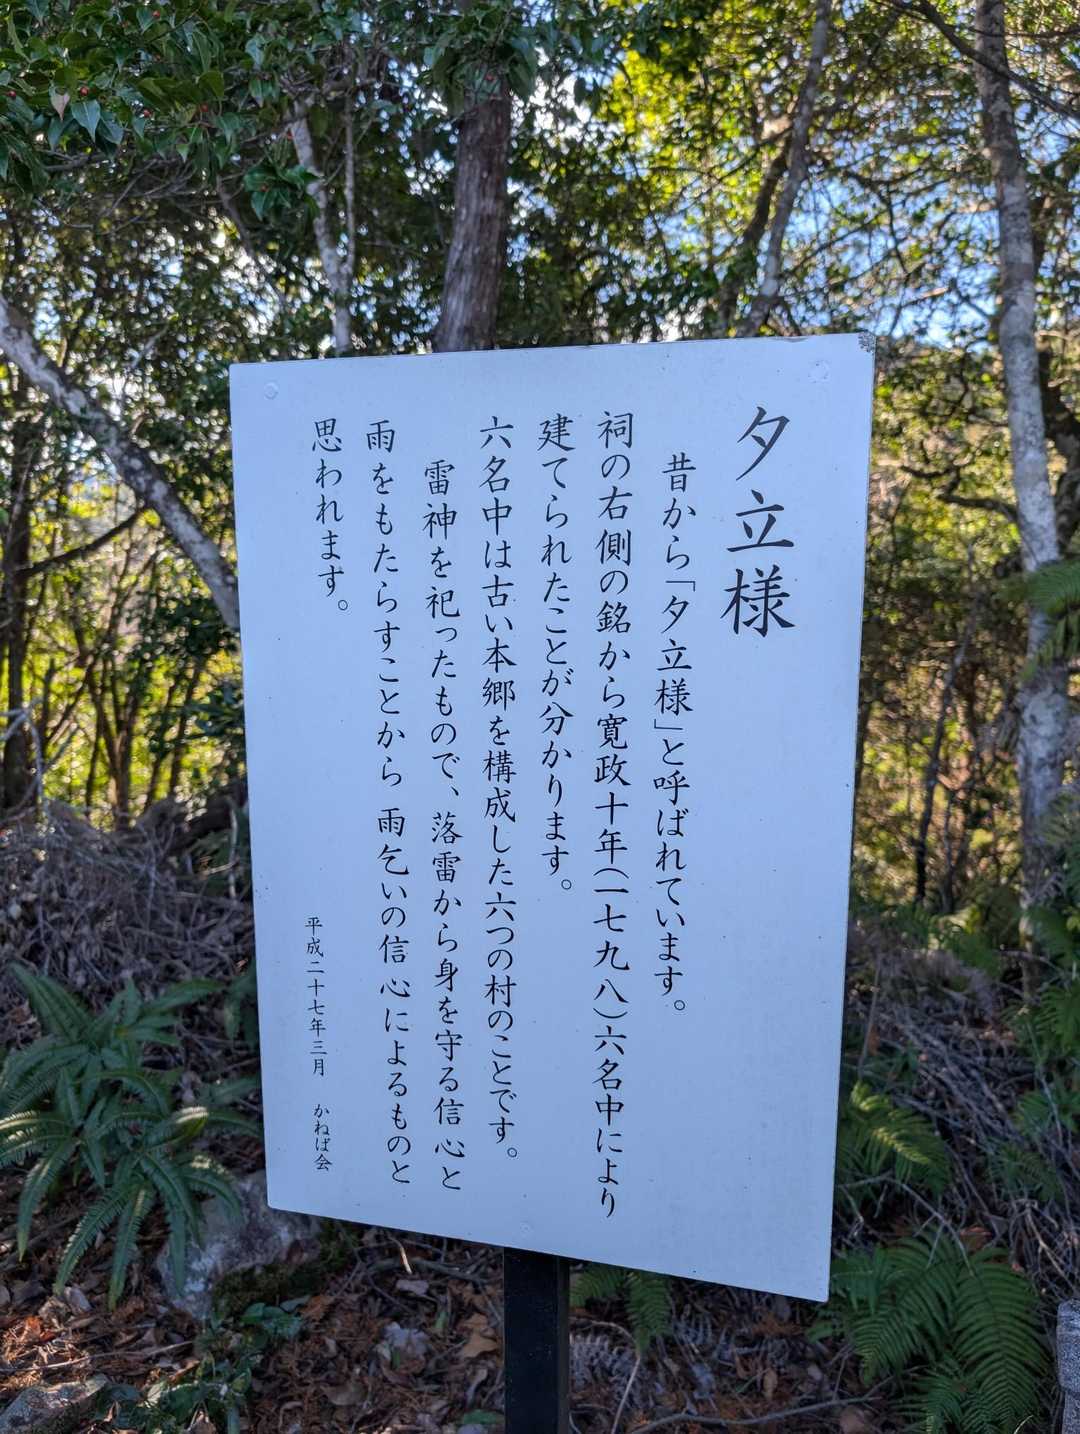 夕立様
昔から「夕立様」と呼ばれています。
祠の右側の銘から寛政十年(一七九八)六名中により
建てられたことが分かります。
六名中は古い本郷を構成した六つの村のことです。
雷神を祀ったもので、落雷から身を守る信心と
雨をもたらすことから 雨乞いの信心によるものと
思われます。
平成二十七年三月 かねば会